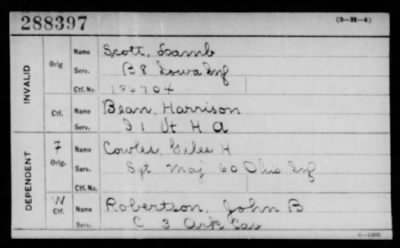 288397 (3-22-4)
INVALID
Orig
Name Scott, Lamb
Serv. B 8 Iowa Inf
Ctf. No. 126704
Ctf.
Name Bean, Harrison
Serv. I 1 Vt H A
DEPENDENT
F
Orig.
Name Cowles, Giles H
Serv. Sgt Maj 60 Ohio Inf
Ctf. No.
W
Ctf.
Name Robertson, John B
Serv. C 3 Ark Cav